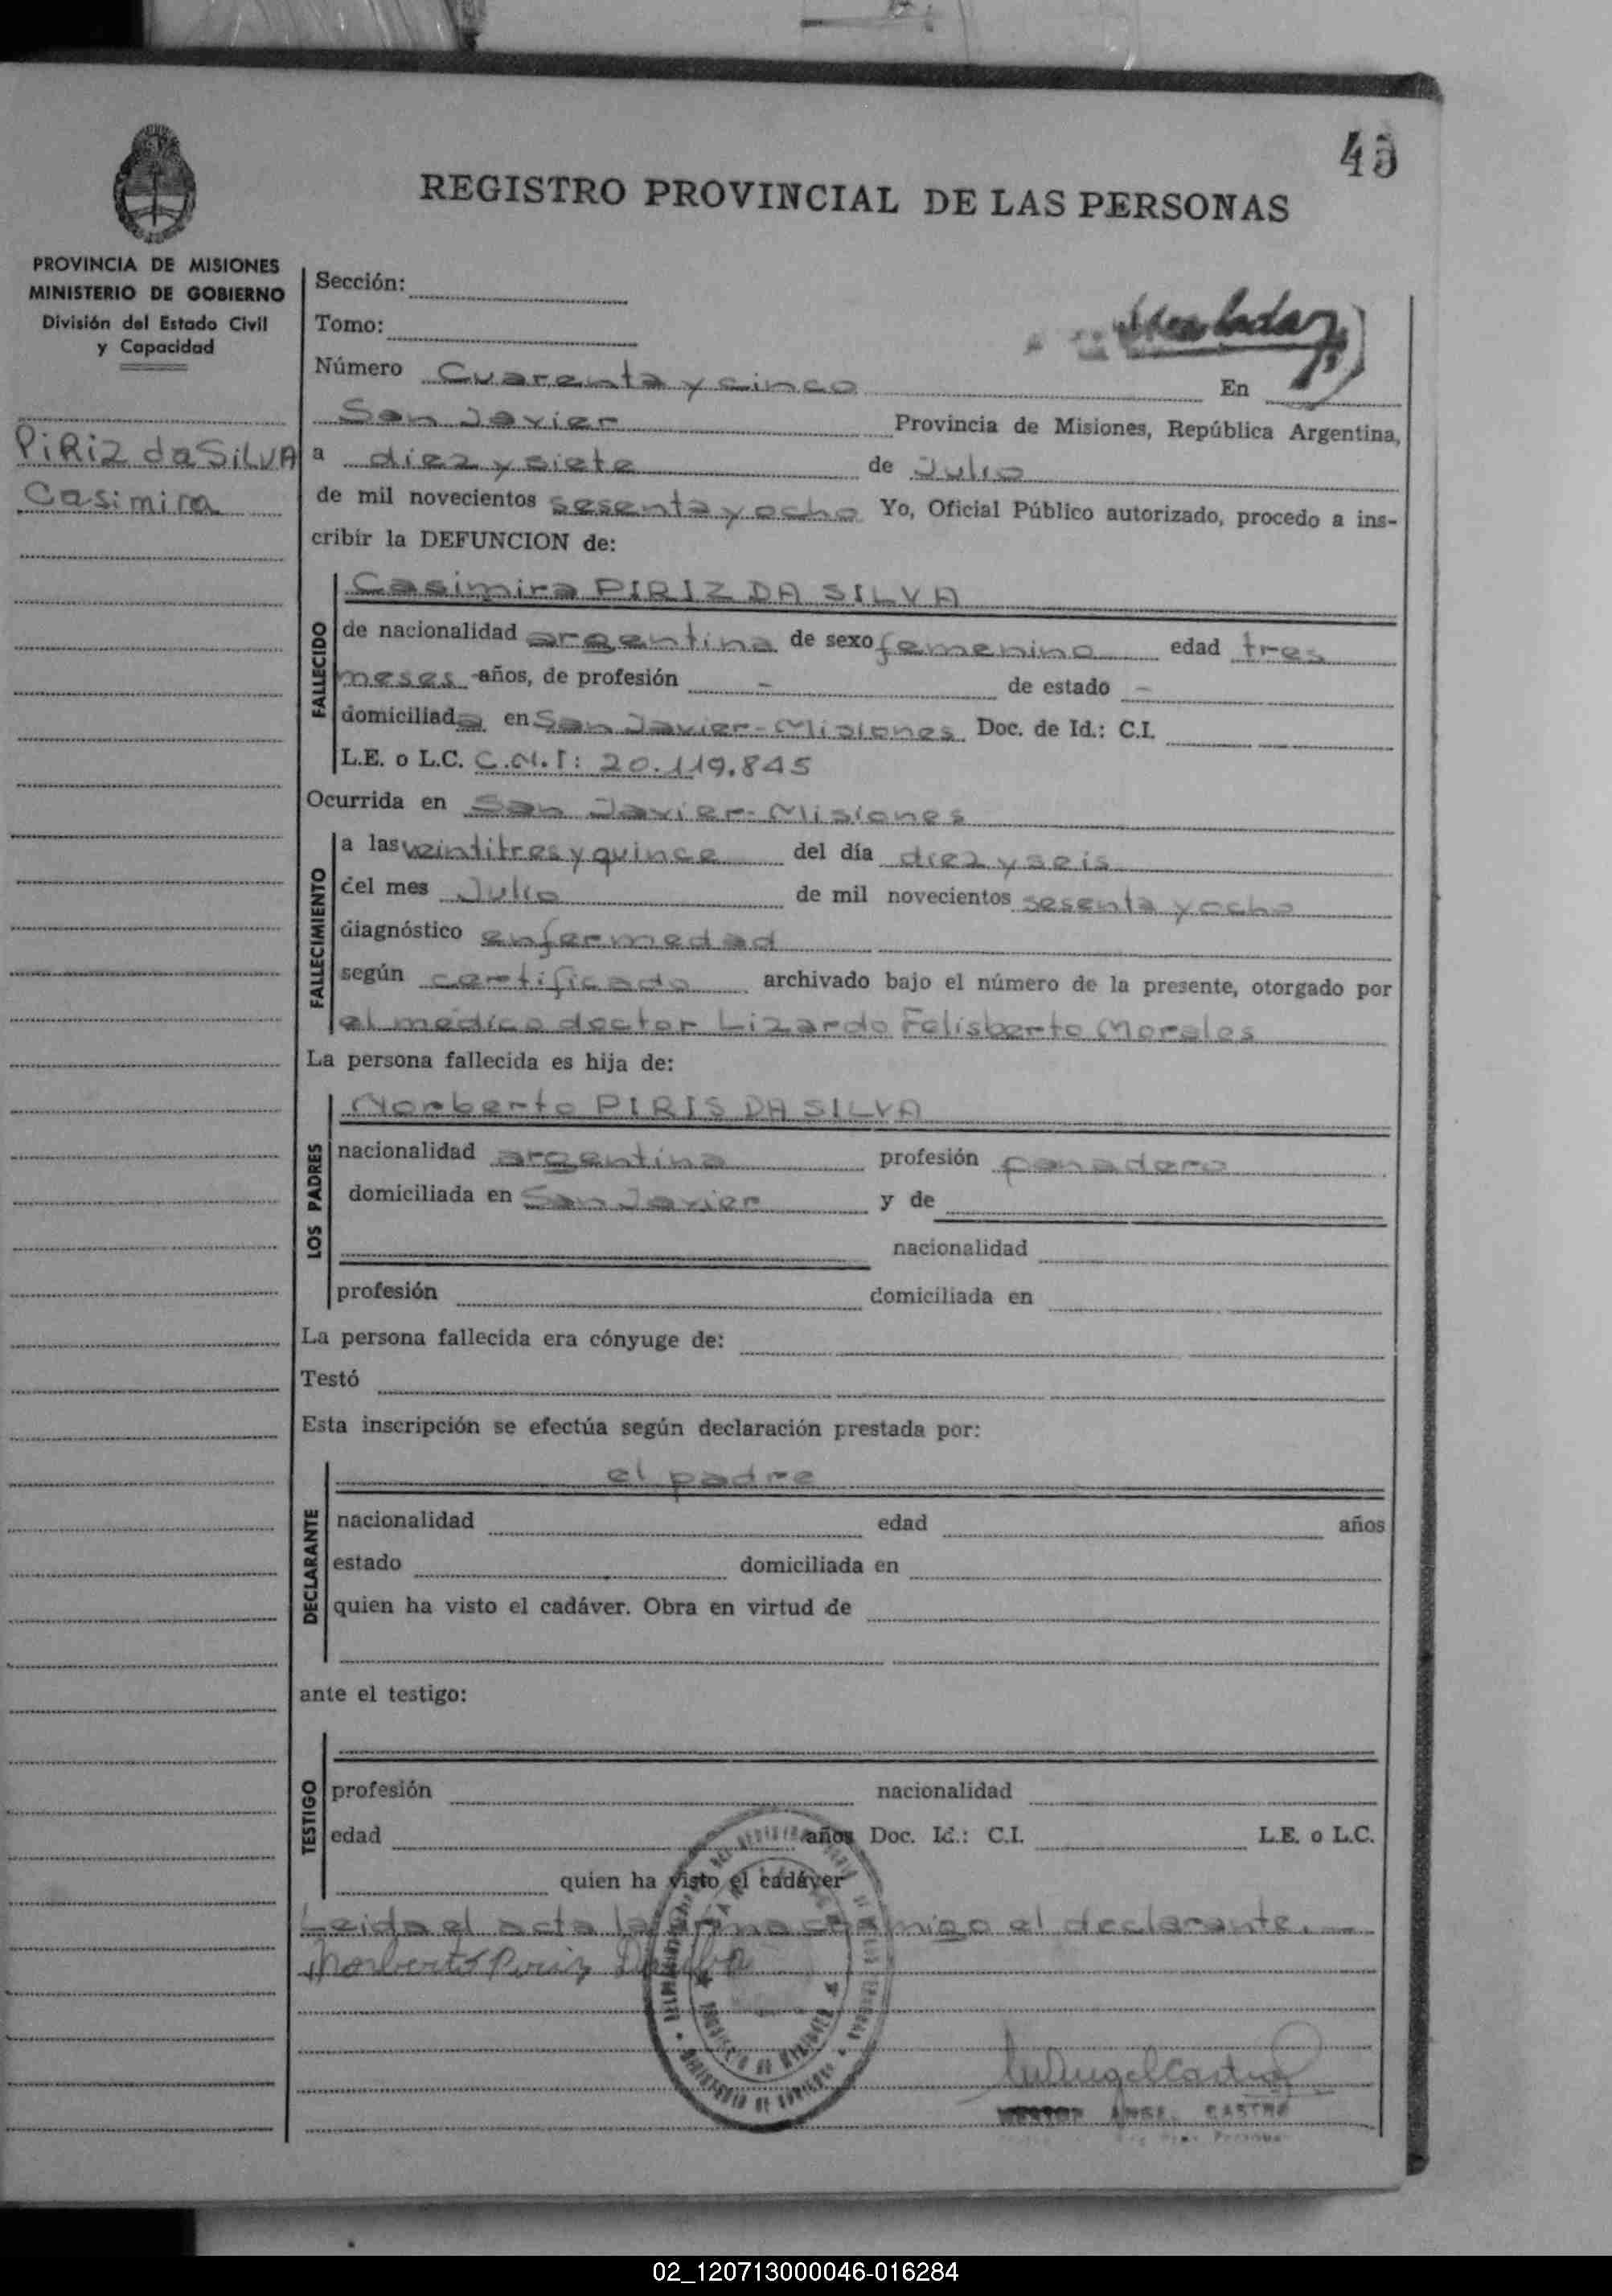 45
REGISTRO PROVINCIAL DE LAS PERSONAS
PROVINCIA DE MISIONES
MINISTERIO DE GOBIERNO
División del Estado Civil
y Capacidad
PIRIZ da SILVA
Casimira
Sección:
Tomo:
Número Cuarenta y cinco En
San Javier Provincia de Misiones, República Argentina,
a diez y siete de Julio
de mil novecientos sesenta y ocho Yo, Oficial Público autorizado, procedo a ins-
cribir la DEFUNCION de:
FALLECIDO
Casimira PIRIZ DA SILVA
de nacionalidad argentina de sexo femenino edad tres
meses años, de profesión - de estado -
domiciliada en San Javier - Misiones Doc. de Id.: C.I.
L.E. o L.C. C.N.I: 20.119.845
Ocurrida en San Javier - Misiones
FALLECIMIENTO
a las veintitres y quince del día diez y seis
del mes Julio de mil novecientos sesenta y ocho
diagnóstico enfermedad
según certificado archivado bajo el número de la presente, otorgado por
el medico doctor Lizardo Felisberto Morales
La persona fallecida es hija de:
LOS PADRES
Norberto PIRIS DA SILVA
nacionalidad argentina profesión panadero
domiciliada en San Javier y de
nacionalidad
profesión domiciliada en
La persona fallecida era cónyuge de:
Testó
Esta inscripción se efectúa según declaración prestada por:
DECLARANTE
el padre
nacionalidad edad años
estado domiciliada en
quien ha visto el cadáver. Obra en virtud de
ante el testigo:
TESTIGO
profesión nacionalidad
edad años Doc. Id.: C.I. L.E. o L.C.
quien ha visto el cadáver
Leida el acta la firma conmigo el declarante.
Norberto Piriz Da Silva
MINISTERIO DE GOBIERNO
PROVINCIA DE MISIONES
CASTRO
02_120713000046-016284